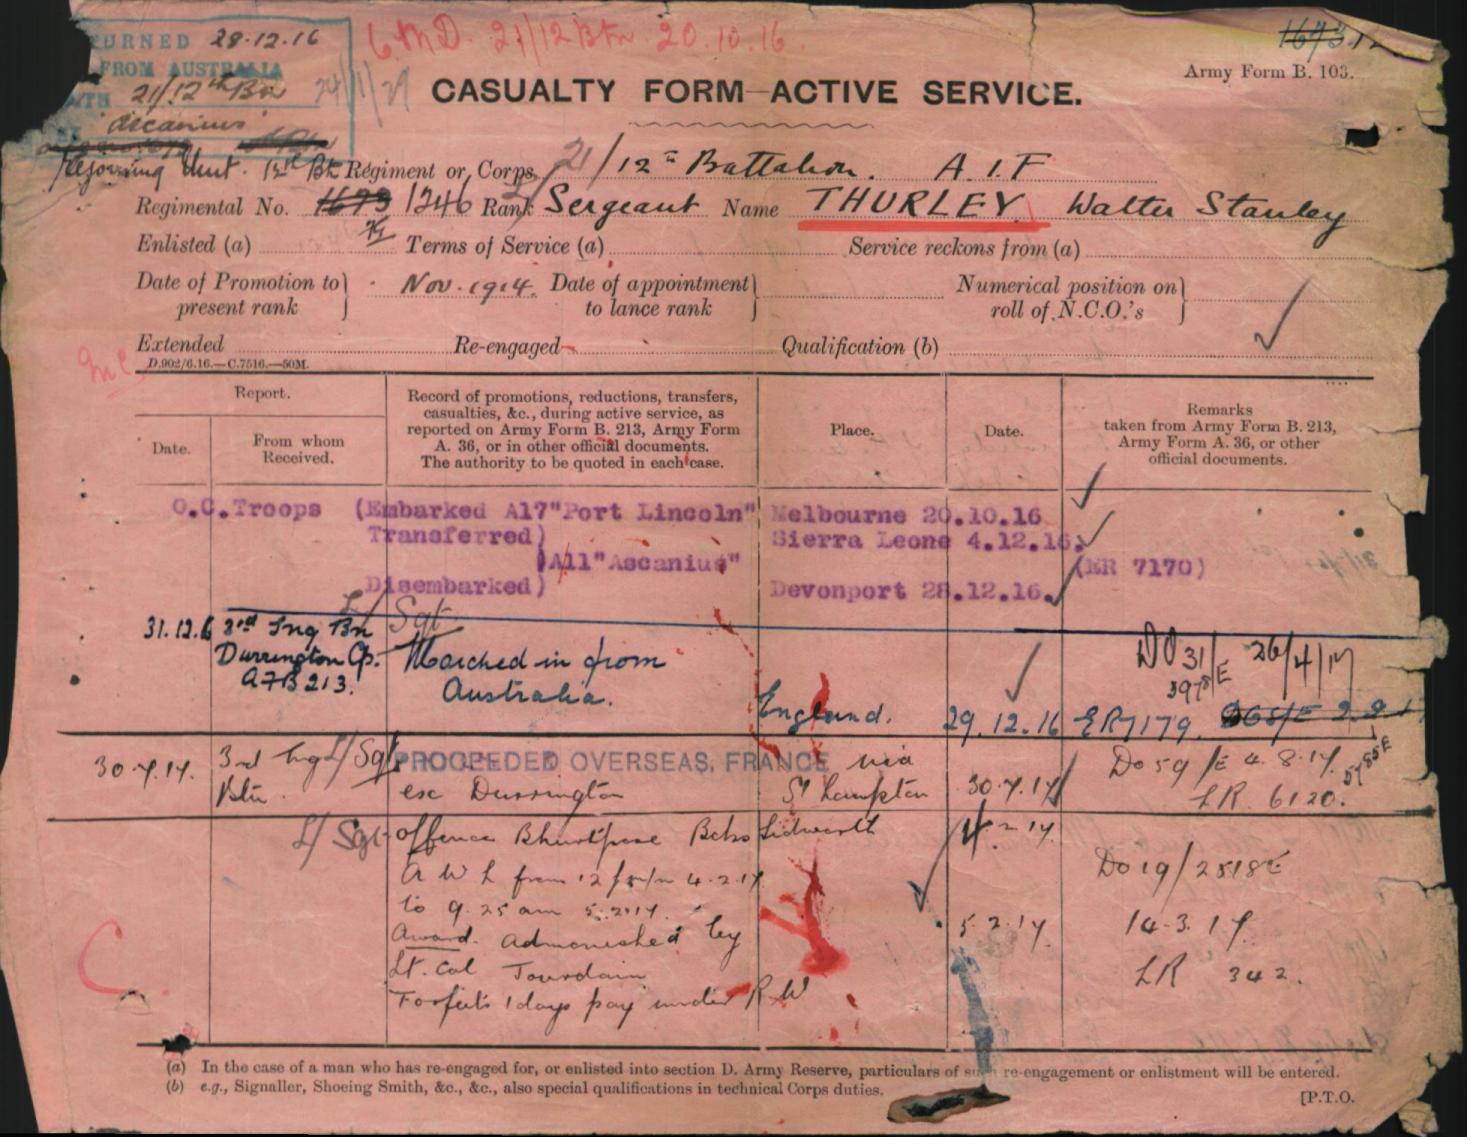 URNED 28.12.16
FROM AUSTRALIA
21/12th Bn
Ascanius
6 M.D. 21/12 Btn. 20.10.16.
Army Form B. 103.
CASUALTY FORM—ACTIVE SERVICE.
Rejoining Unit. 12th Bn
Regiment or Corps 21/12th Battalion. A.I.F
Regimental No. 1673 1246 Rank Sergeant Name THURLEY Walter Stanley
Enlisted (a) Terms of Service (a) Service reckons from (a)
Date of Promotion to present rank } Nov. 1914. Date of appointment to lance rank } Numerical position on roll of N.C.O.'s }
Extended Re-engaged Qualification (b)
D.902/6.16.—C.7516.—50M.
Report.
Date.
From whom Received.
Record of promotions, reductions, transfers,
casualties, &c., during active service, as
reported on Army Form B. 213, Army Form
A. 36, or in other official documents.
The authority to be quoted in each case.
Place.
Date.
Remarks
taken from Army Form B. 213,
Army Form A. 36, or other
official documents.
O.C.Troops (Embarked A17"Port Lincoln" Melbourne 20.10.16
Transferred) Sierra Leone 4.12.16.
(A11"Ascanius" (ER 7170)
Disembarked) Devonport 28.12.16.
L/Sgt
31.12.6 3rd Tng Bn
Durrington Cp.
AFB 213.
Marched in from
Australia.
England. 29.12.16 ER 7179
DO 31/E 26/4/17
3978/E
30.7.17. 3rd Tng Btn. L/Sgt PROCEEDED OVERSEAS, FRANCE via
exc Durrington S'hampton 30.7.17
Do 59/E 4.8.17. 5785E
LR. 6120.
L/Sgt offence Bhurtpore Bcks Tidworth 4.2.17
A W L from 12 4.2.17
to 9.25 am 5.2.17.
Award. Admonished by 5.2.17.
Lt. Col Jourdain
Forfeits 1 days pay under R W
Do 19/2518E
14.3.17.
LR 342.
(a) In the case of a man who has re-engaged for, or enlisted into section D. Army Reserve, particulars of such re-engagement or enlistment will be entered.
(b) e.g., Signaller, Shoeing Smith, &c., &c., also special qualifications in technical Corps duties.
[P.T.O.